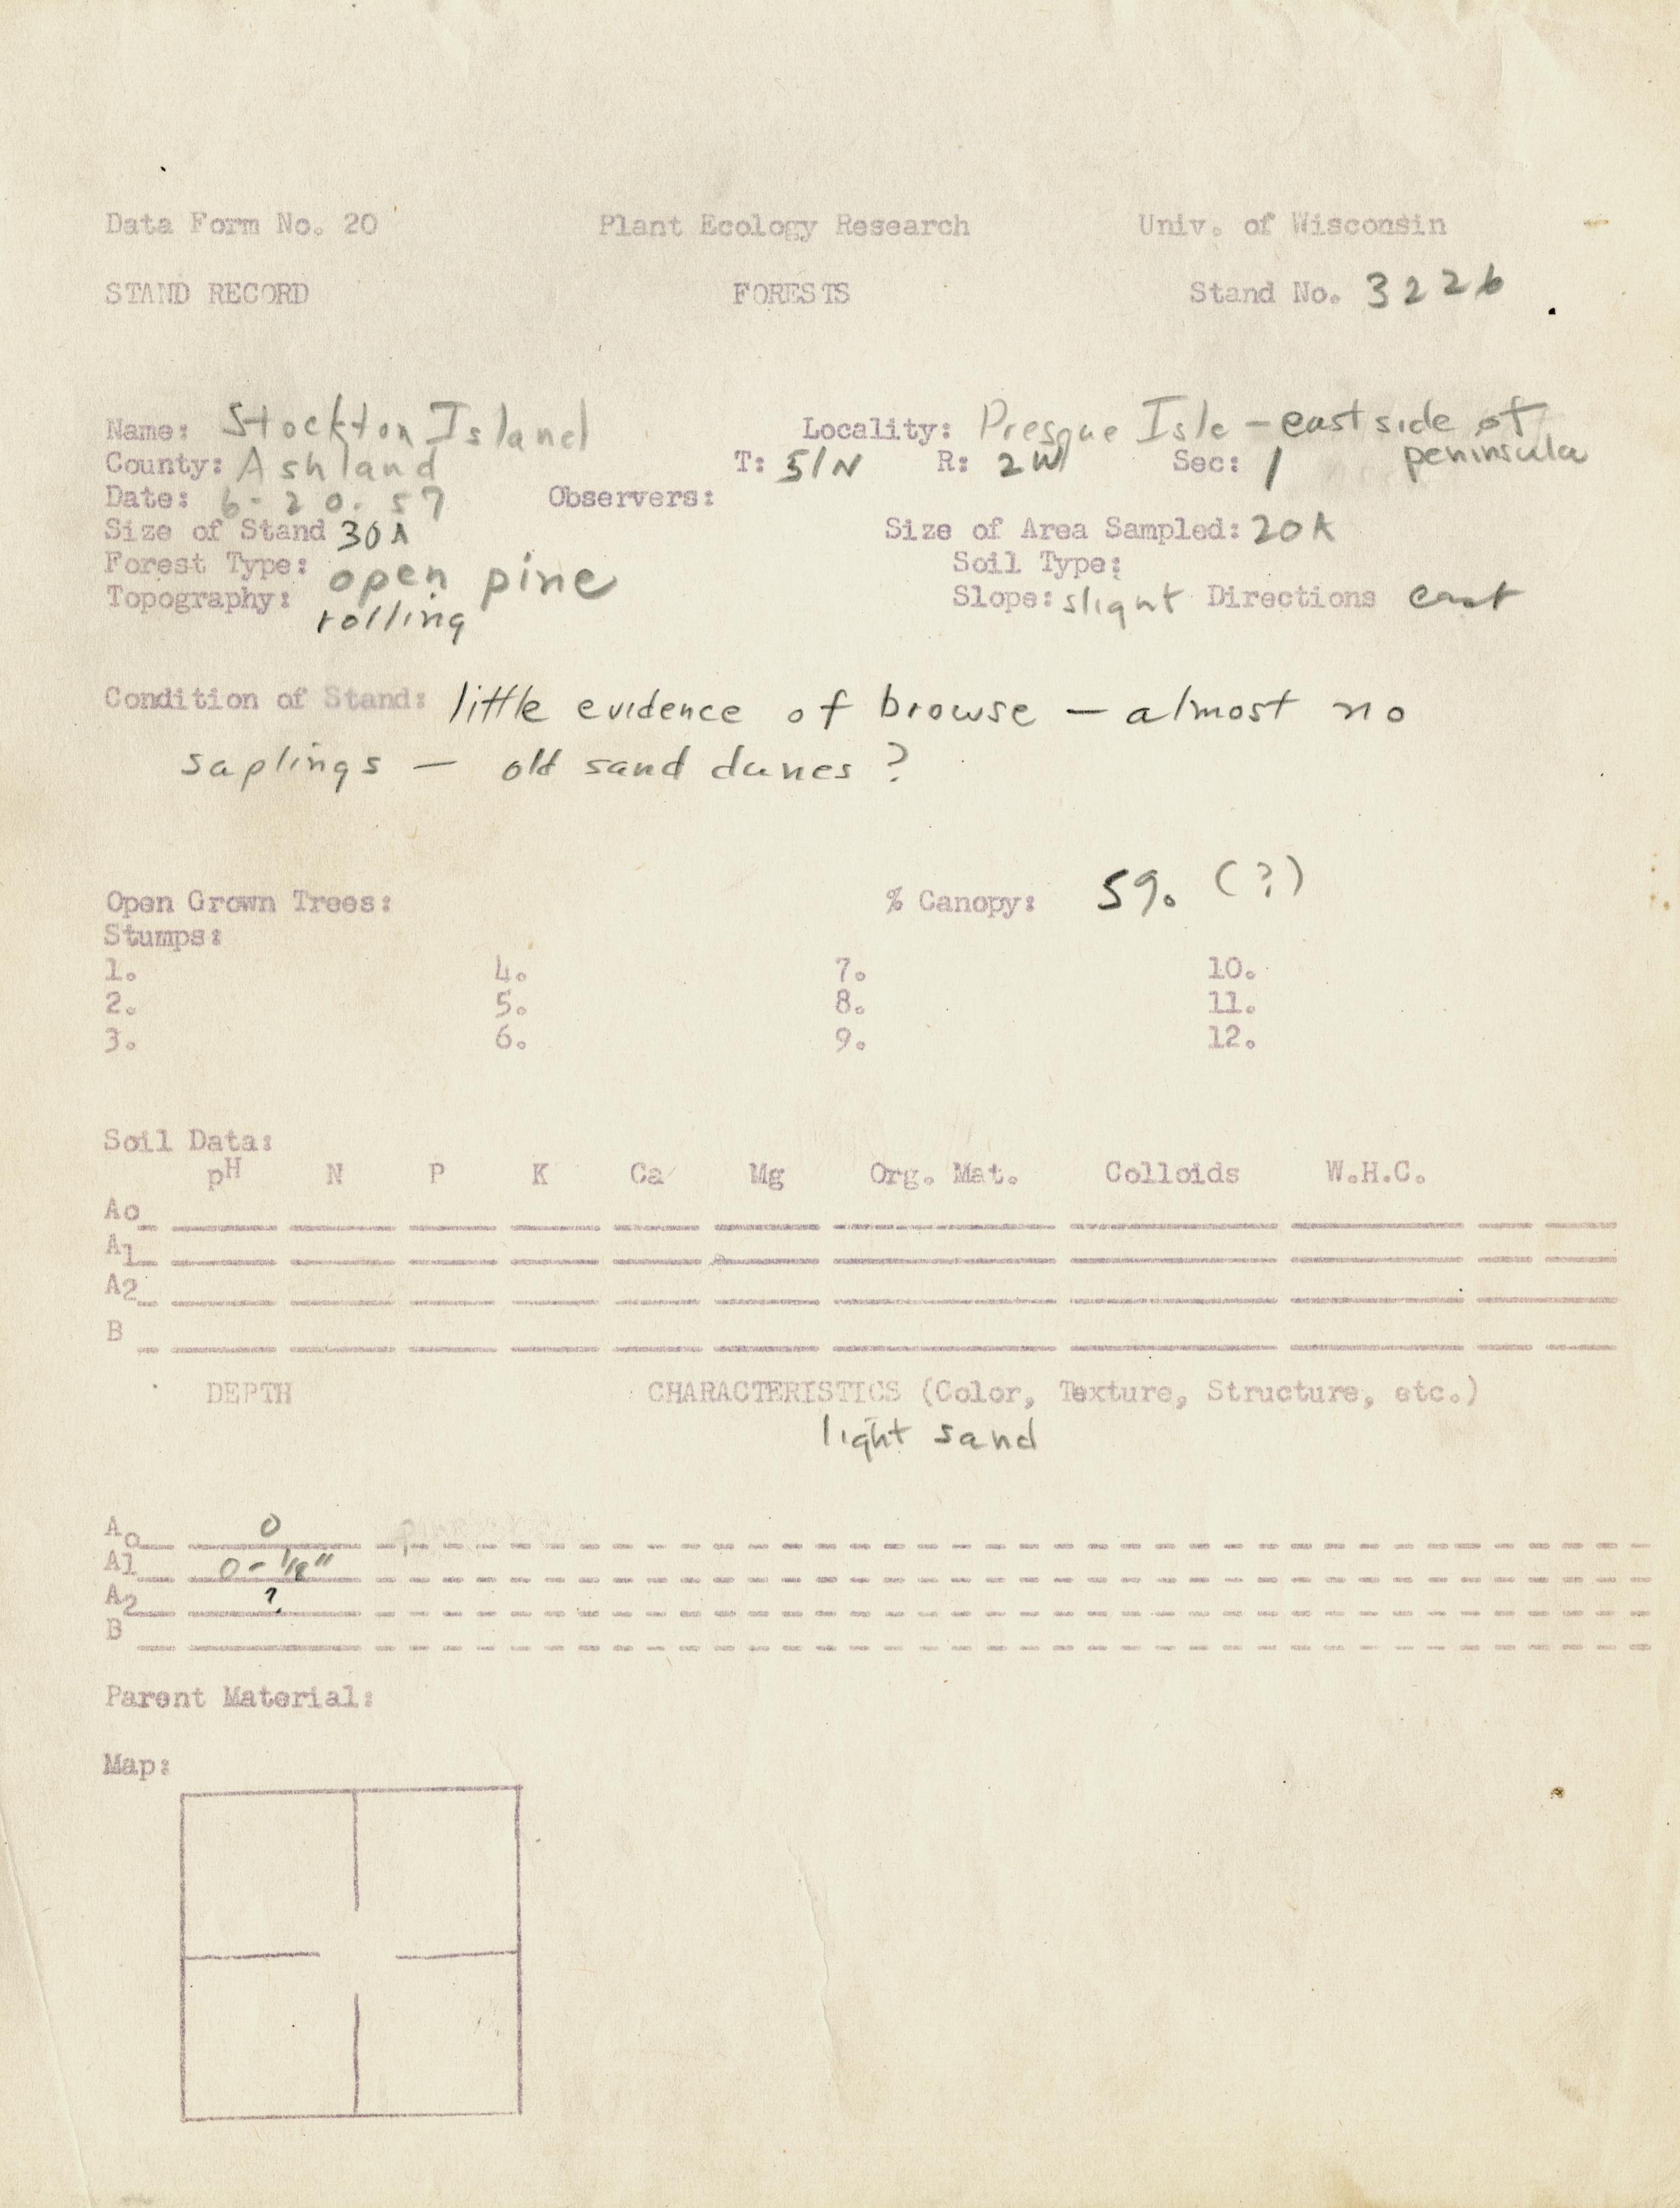 Data Form No. 20 Plant Ecology Research Univ. of Wisconsin
STAND RECORD FORESTS Stand No. 3226
Name: Stockton Island Locality: Presque Isle – east side of
County: Ashland T: 51N R: 2W Sec: 1 peninsula
Date: 6-20-57 Observers:
Size of Stand 30A Size of Area Sampled: 20A
Forest Type: open pine Soil Type:
Topography: rolling Slope: slight Directions east
Condition of Stand: little evidence of browse – almost no
saplings – old sand dunes ?
Open Grown Trees: % Canopy: 5%. (?)
Stumps:
1. 4. 7. 10.
2. 5. 8. 11.
3. 6. 9. 12.
Soil Data:
pH N P K Ca Mg Org. Mat. Colloids W.H.C.
Ao
A1
A2
B
DEPTH CHARACTERISTICS (Color, Texture, Structure, etc.)
light sand
Ao 0
A1 0 -
A2 ?
B
Parent Material:
Map: